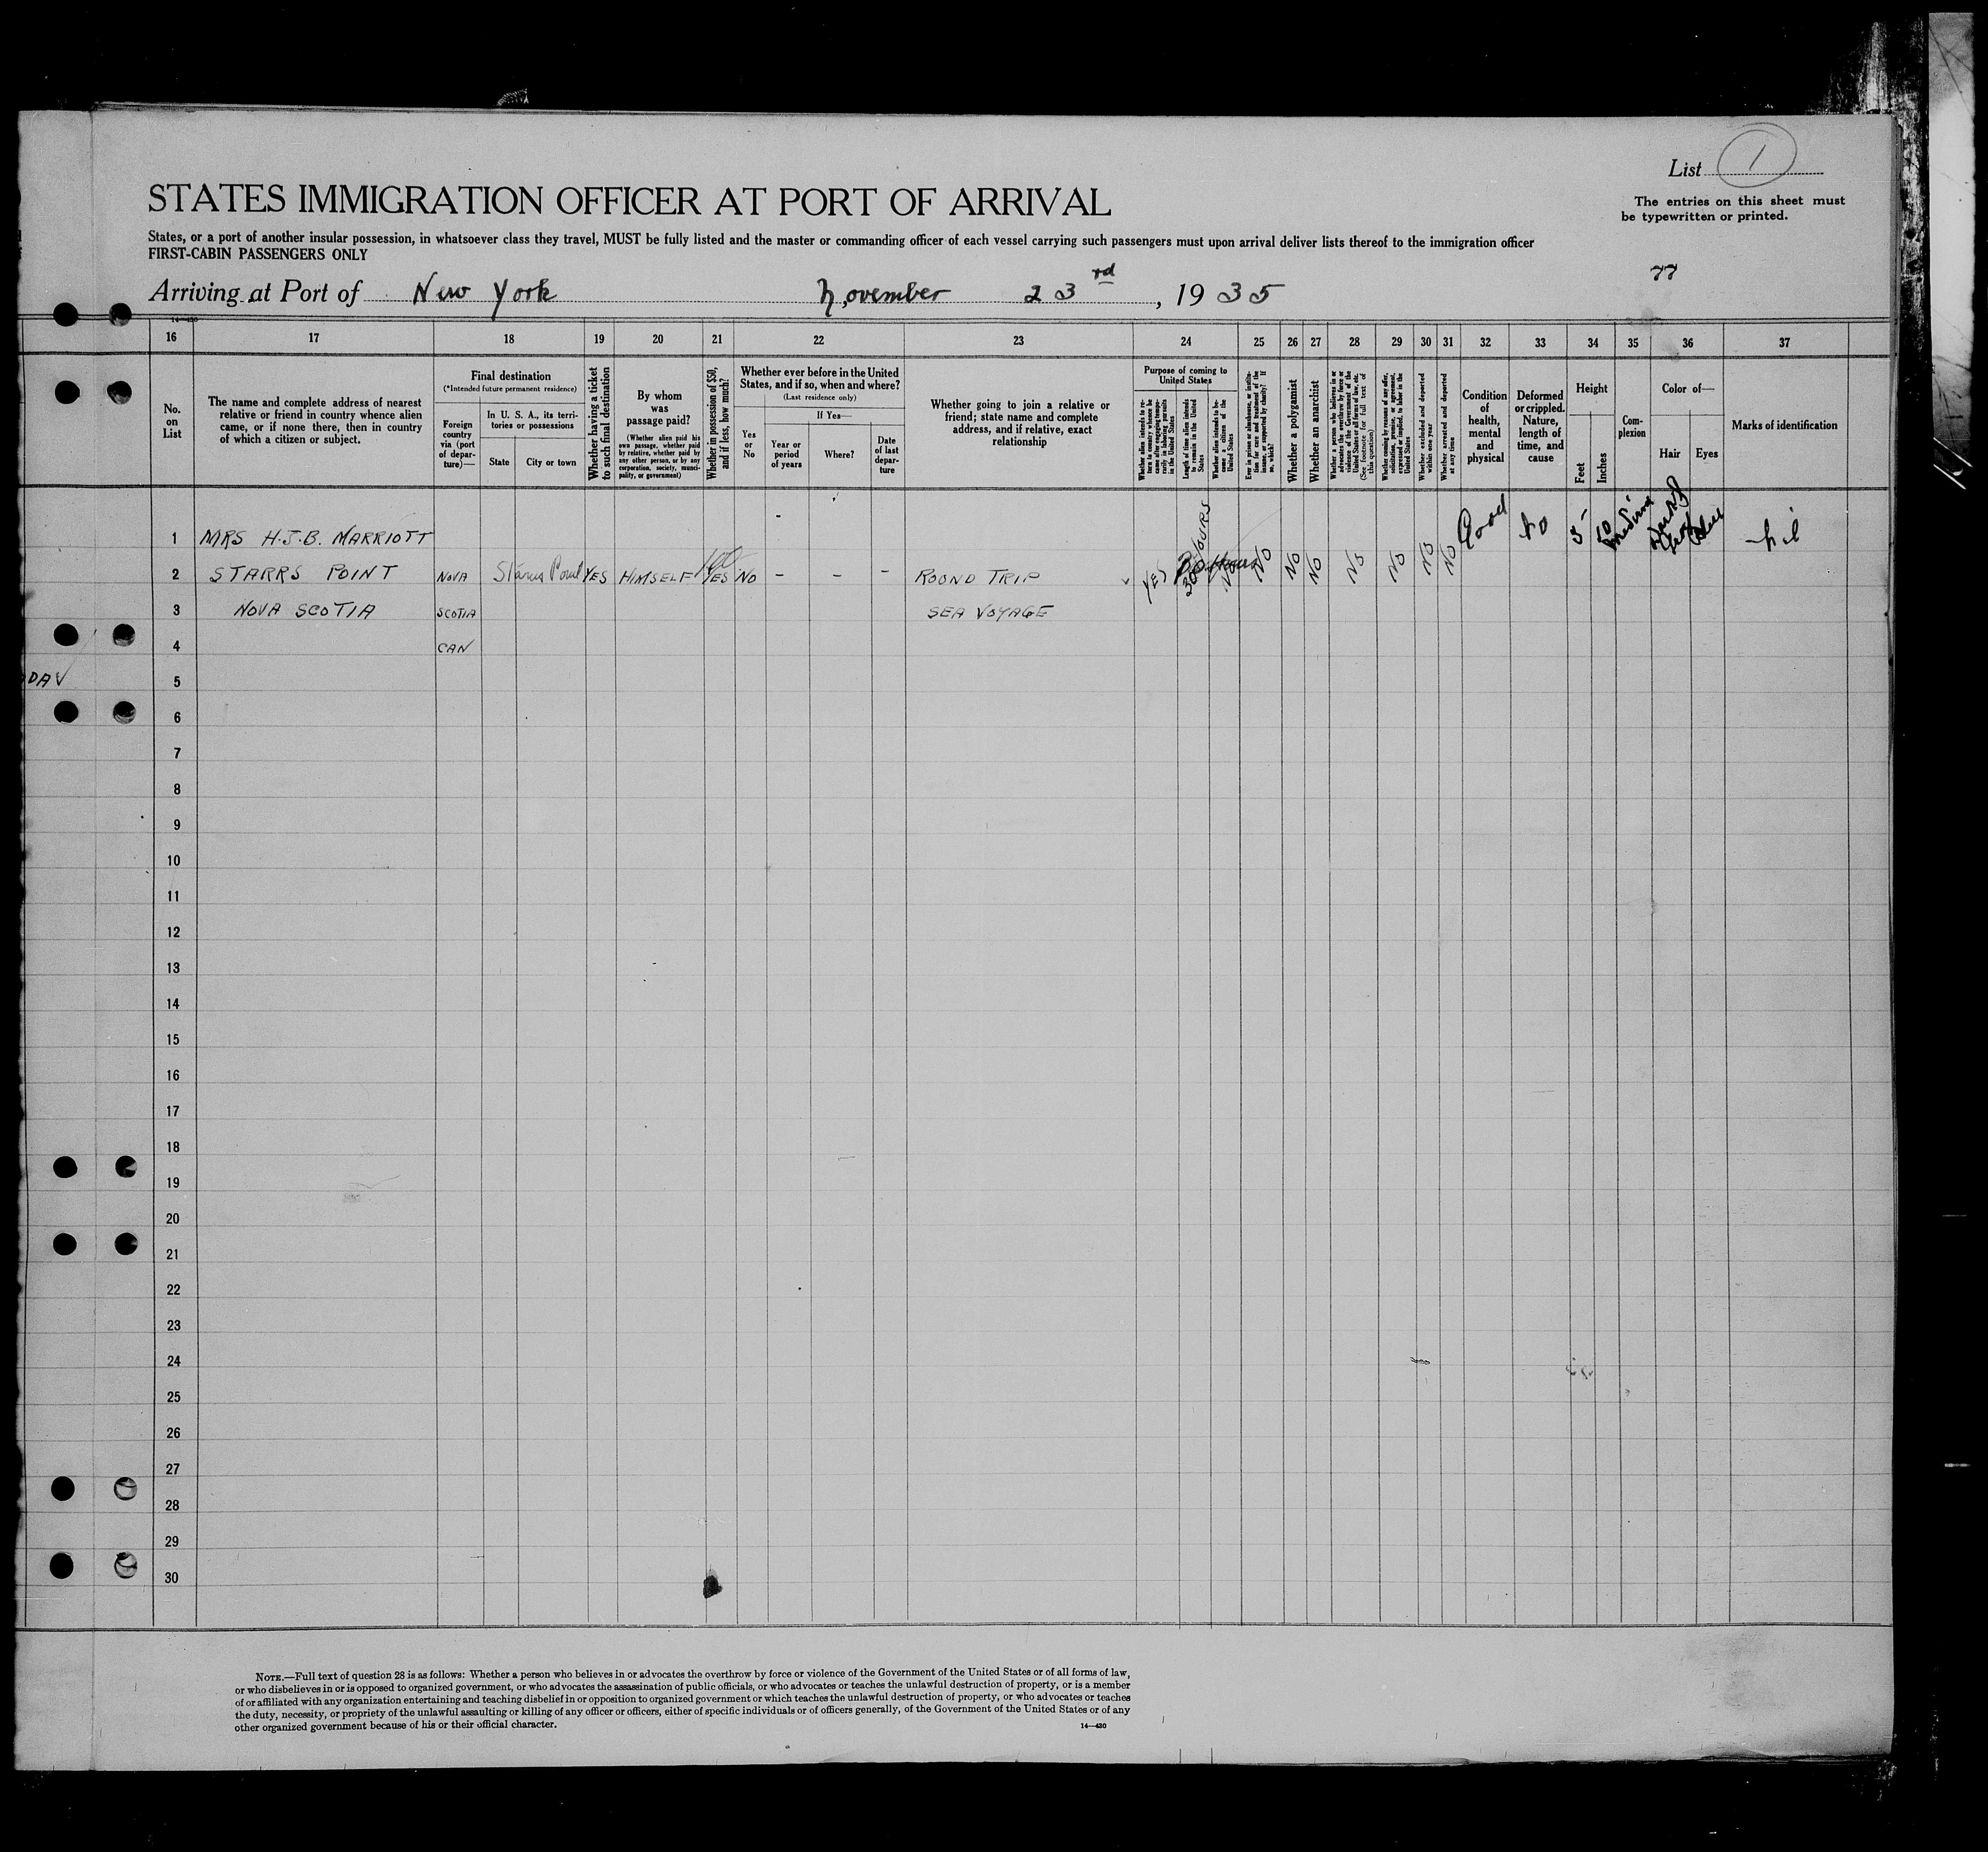 List 1
STATES IMMIGRATION OFFICER AT PORT OF ARRIVAL
The entries on this sheet must
be typewritten or printed.
States, or a port of another insular possession, in whatsoever class they travel, MUST be fully listed and the master or commanding officer of each vessel carrying such passengers must upon arrival deliver lists thereof to the immigration officer
FIRST-CABIN PASSENGERS ONLY
77
Arriving at Port of New York November 23rd, 1935
14—430
16 17 18 19 20 21 22 23 24 25 26 27 28 29 30 31 32 33 34 35 36 37
No.
on
List
The name and complete address of nearest
relative or friend in country whence alien
came, or if none there, then in country
of which a citizen or subject.
Final destination
(*Intended future permanent residence)
Foreign
country
via (port
of depar-
ture)—
In U. S. A., its terri-
tories or possessions
State
City or town
Whether having a ticket
to such final destination
By whom
was
passage paid?
(Whether alien paid his
own passage, whether paid
by relative, whether paid by
any other person, or by any
corporation, society, munici-
pality, or government)
Whether in possession of $50,
and if less, how much?
Whether ever before in the United
States, and if so, when and where?
(Last residence only)
Yes
or
No
If Yes—
Year or
period
of years
Where?
Date
of last
depar-
ture
Whether going to join a relative or
friend; state name and complete
address, and if relative, exact
relationship
Purpose of coming to
United States
Whether alien intends to re-
turn to country whence he
came after engaging tempo-
rarily in laboring pursuits
in the United States
Length of time alien intends
to remain in the United
States
Whether alien intends to be-
come a citizen of the
United States
Ever in prison or almshouse, or institu-
tion for care and treatment of the
insane, or supported by charity? If
so, which?
Whether a polygamist
Whether an anarchist
Whether a person who believes in or
advocates the overthrow by force or
violence of the Government of the
United States or all forms of law, etc.
(See footnote for full text of
this question)
Whether coming by reason of any offer,
solicitation, promise, or agreement,
expressed or implied, to labor in the
United States
Whether excluded and deported
within one year
Whether arrested and deported
at any time
Condition
of
health,
mental
and
physical
Deformed
or crippled.
Nature,
length of
time, and
cause
Height
Feet
Inches
Com-
plexion
Color of—
Hair
Eyes
Marks of identification
1 MRS H.J.B. MARRIOTT Good No 5 10 Medium
2 STARRS POINT NOVA Starrs Point YES HIMSELF 100 YES NO - - - ROUND TRIP YES HOURS NO NO NO NO NO NO NO NO
3 NOVA SCOTIA SCOTIA SEA VOYAGE
4 CAN
5
6
7
8
9
10
11
12
13
14
15
16
17
18
19
20
21
22
23
24
25
26
27
28
29
30
NOTE.—Full text of question 28 is as follows: Whether a person who believes in or advocates the overthrow by force or violence of the Government of the United States or of all forms of law,
or who disbelieves in or is opposed to organized government, or who advocates the assassination of public officials, or who advocates or teaches the unlawful destruction of property, or is a member
of or affiliated with any organization entertaining and teaching disbelief in or opposition to organized government or which teaches the unlawful destruction of property, or who advocates or teaches
the duty, necessity, or propriety of the unlawful assaulting or killing of any officer or officers, either of specific individuals or of officers generally, of the Government of the United States or of any
other organized government because of his or their official character.
14—430